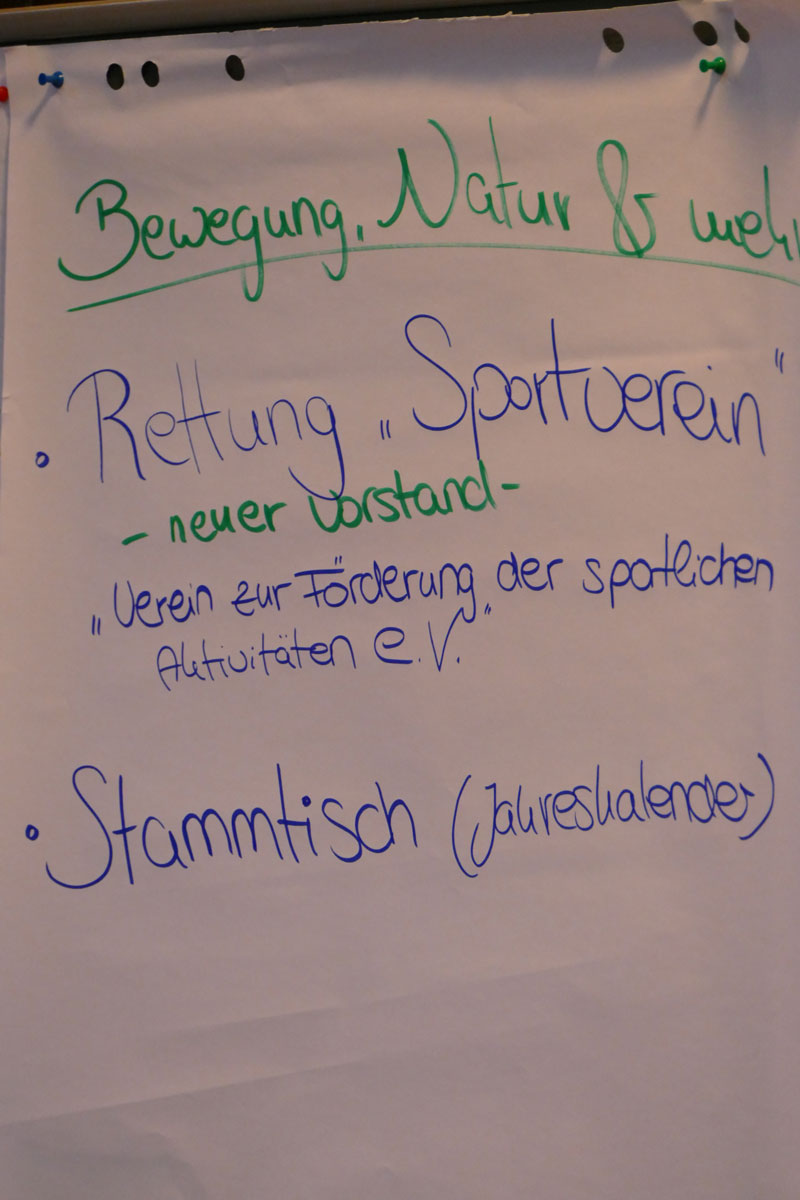 Bewegung, Natur & mehr
• Rettung „Sportverein"
- neuer Vorstand -
„Verein zur Förderung der spotlichen
Aktivitäten e.V."
• Stammtisch (Jahreskalender)